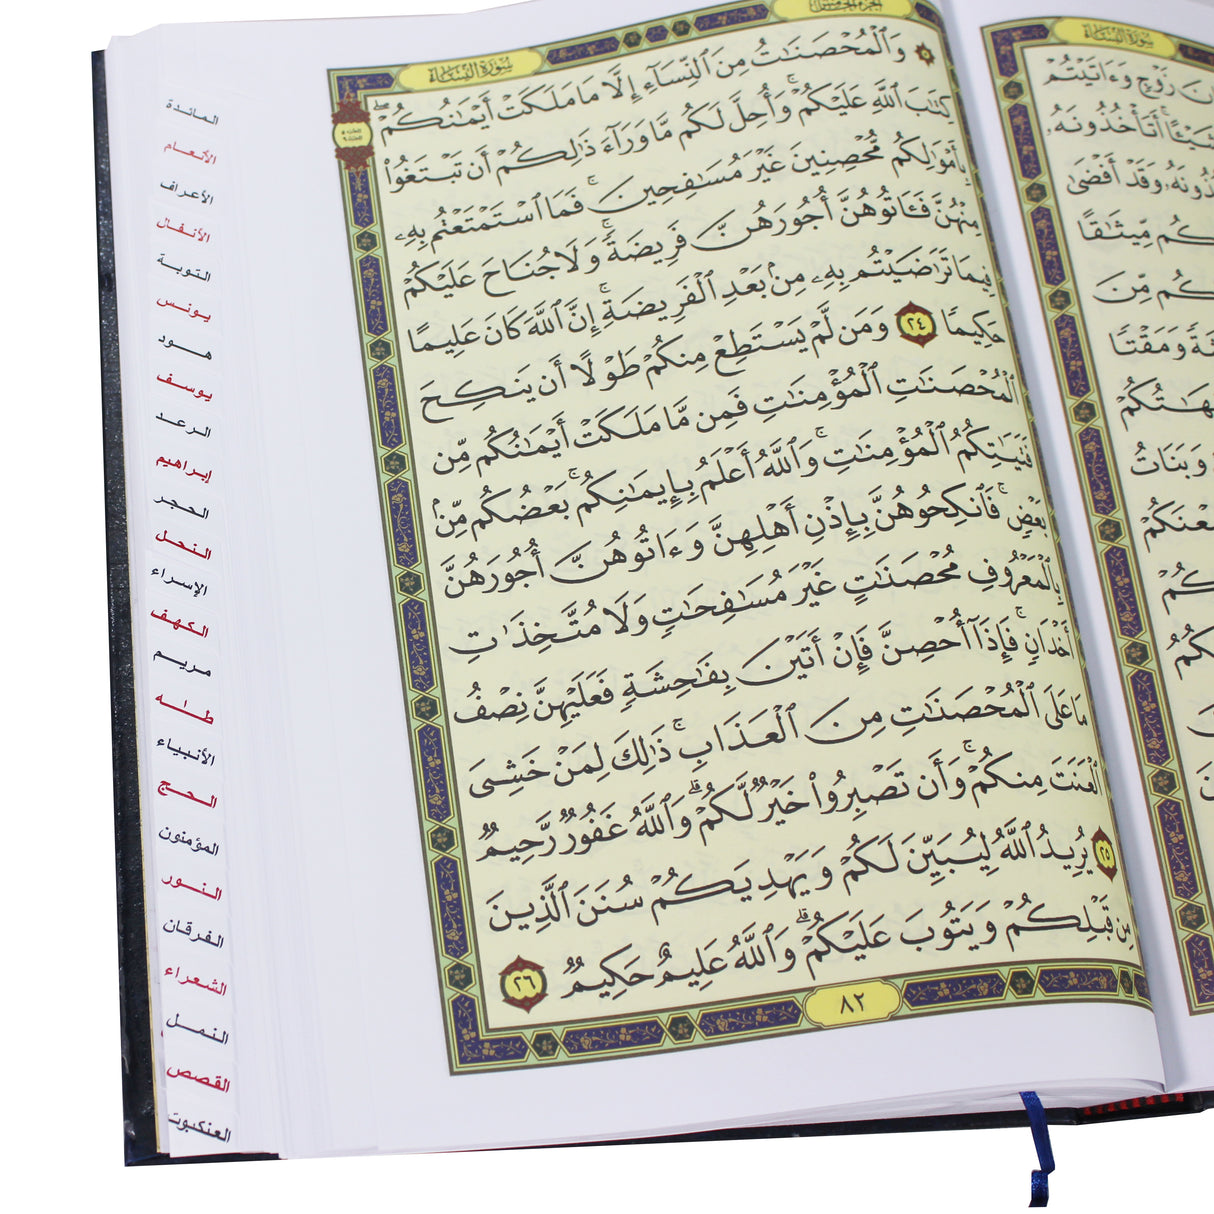 سورة النساء
وَٱلْمُحْصَنَٰتُ مِنَ ٱلنِّسَآءِ إِلَّا مَا مَلَكَتْ أَيْمَٰنُكُمْ ۖ
كِتَٰبَ ٱللَّهِ عَلَيْكُمْ ۚ وَأُحِلَّ لَكُم مَّا وَرَآءَ ذَٰلِكُمْ أَن تَبْتَغُوا۟
بِأَمْوَٰلِكُم مُّحْصِنِينَ غَيْرَ مُسَٰفِحِينَ ۚ فَمَا ٱسْتَمْتَعْتُم بِهِۦ
مِنْهُنَّ فَـَٔاتُوهُنَّ أُجُورَهُنَّ فَرِيضَةً ۚ وَلَا جُنَاحَ عَلَيْكُمْ
فِيمَا تَرَٰضَيْتُم بِهِۦ مِنۢ بَعْدِ ٱلْفَرِيضَةِ ۚ إِنَّ ٱللَّهَ كَانَ عَلِيمًا
حَكِيمًا ٢٤ وَمَن لَّمْ يَسْتَطِعْ مِنكُمْ طَوْلًا أَن يَنكِحَ
ٱلْمُحْصَنَٰتِ ٱلْمُؤْمِنَٰتِ فَمِن مَّا مَلَكَتْ أَيْمَٰنُكُم مِّن
فَتَيَٰتِكُمُ ٱلْمُؤْمِنَٰتِ ۚ وَٱللَّهُ أَعْلَمُ بِإِيمَٰنِكُم ۚ بَعْضُكُم مِّنۢ
بَعْضٍ ۚ فَٱنكِحُوهُنَّ بِإِذْنِ أَهْلِهِنَّ وَءَاتُوهُنَّ أُجُورَهُنَّ
بِٱلْمَعْرُوفِ مُحْصَنَٰتٍ غَيْرَ مُسَٰفِحَٰتٍ وَلَا مُتَّخِذَٰتِ
أَخْدَانٍ ۚ فَإِذَآ أُحْصِنَّ فَإِنْ أَتَيْنَ بِفَٰحِشَةٍ فَعَلَيْهِنَّ نِصْفُ
مَا عَلَى ٱلْمُحْصَنَٰتِ مِنَ ٱلْعَذَابِ ۚ ذَٰلِكَ لِمَنْ خَشِىَ
ٱلْعَنَتَ مِنكُمْ ۚ وَأَن تَصْبِرُوا۟ خَيْرٌ لَّكُمْ ۗ وَٱللَّهُ غَفُورٌ رَّحِيمٌ
٢٥ يُرِيدُ ٱللَّهُ لِيُبَيِّنَ لَكُمْ وَيَهْدِيَكُمْ سُنَنَ ٱلَّذِينَ
مِن قَبْلِكُمْ وَيَتُوبَ عَلَيْكُمْ ۗ وَٱللَّهُ عَلِيمٌ حَكِيمٌ ٢٦
٨٢
سورة النساء
زَوْجٍ وَءَاتَيْتُمْ
أَتَأْخُذُونَهُۥ
وَقَدْ أَفْضَىٰ
مِّيثَٰقًا
مِّنَ
وَمَقْتًا
وَبَنَاتُ
المائدة
الأنعام
الأعراف
الأنفال
التوبة
يونس
هود
يوسف
الرعد
إبراهيم
الحجر
النحل
الإسراء
الكهف
مريم
طه
الأنبياء
الحج
المؤمنون
النور
الفرقان
الشعراء
النمل
القصص
العنكبوت